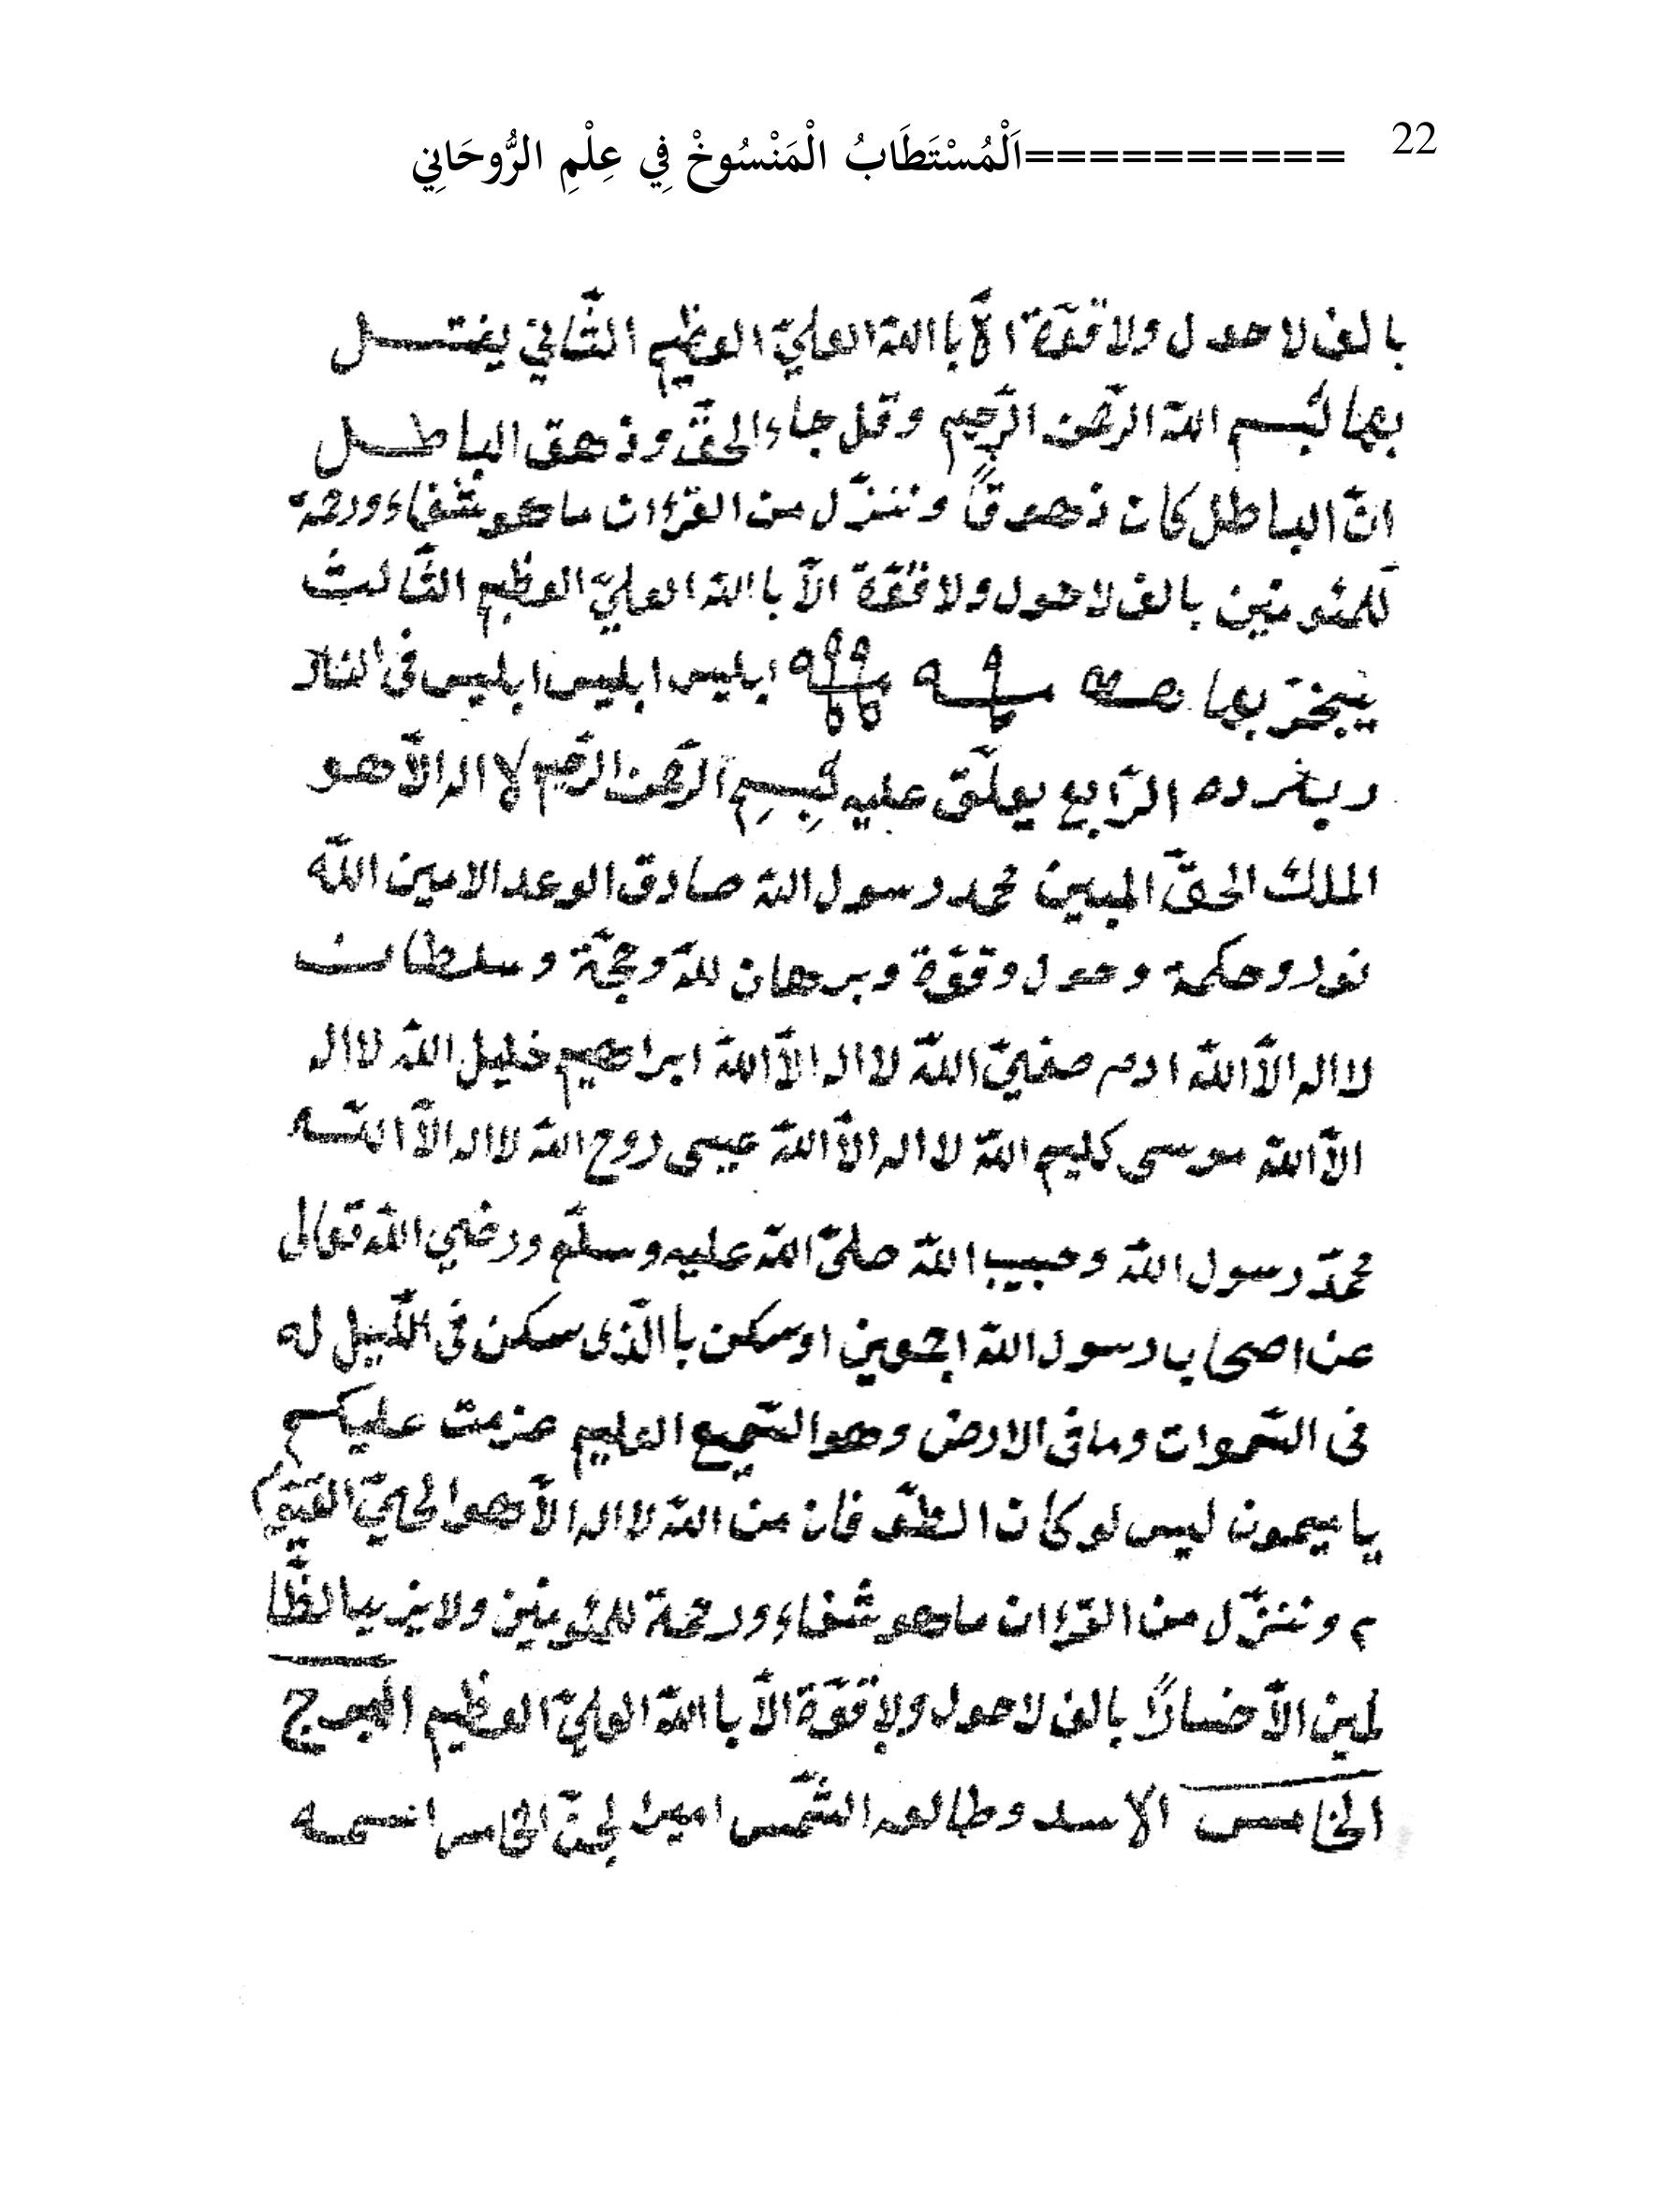 22
==========اَلْمُسْتَطَابُ الْمَنْسُوخْ فِي عِلْمِ الرُّوحَانِي
بالف لا حول ولا قوّة الّا باالله العليّ العظيم الثّاني يغتسل
بها بسم الله الرّحمن الرّحيم وقل جاء الحقّ وذهق الباطل
انّ الباطل كان ذهوقاً وننزّل من القرءان ما هو شفاء ورحمة
للمئومنين بالف لا حول ولا قوّة الّا باالله العليّ العظيم الثّالث
يبخّر بها ابليس ابليس ابليس فى النار
الرّابع يعلّق عليه بسم الرّحمن الرّحيم لا اله الّا هو
الملك الحقّ المبين محمد رسول الله صادق الوعد الامين اللّه
نور وحكمة وحول وقوّة وبرهان للّه وحجّة وسلطان
لا اله الّا اللّه ادم صفيّ اللّه لا اله الّا اللّه ابراهيم خليل اللّه لا اله
الّا اللّه موسى كليم اللّه لا اله الّا اللّه عيسى روح اللّه لا اله الّا اللّه
محمّد رسول اللّه وحبيب اللّه صلىّ اللّه عليه وسلّم ورضي اللّه تعالى
عن اصحاب رسول اللّه اجمعين اوسكن باالّذى سكن فى اللّيل له
فى السّموات وما فى الارض وهو السّميع العليم عزمت عليكم
يا ميمون ليس لو كان فان من اللّه لا اله الّا هو الحيّ القيّو
م وننزّل من القرءان ما هو شفاء ورحمة للمئومنين ولا يزيد الظّا
لمين الّا خسارًا بالف لا حول ولا قوّة الّا باالله العليّ العظيم البرج
الخامس الاسد وطالعه الشّمس امير الجنّ الخامس اسمه